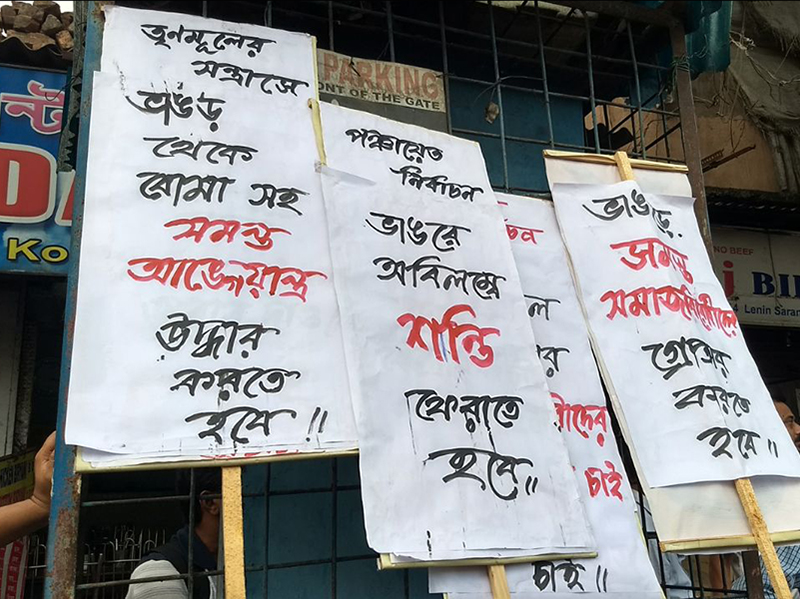 তৃণমূলের
সন্ত্রাসে
ভাঙড়
থেকে
বোমা সহ
সমস্ত
আগ্নেয়াস্ত্র
উদ্ধার
করতে
হবে !!
পঞ্চায়েত
নির্বাচন
ভাঙরে
অবিলম্বে
শান্তি
ফেরাতে
হবে !!
ভাঙড়ে
সমস্ত
সমাজবিরোধীদের
গ্রেপ্তার
করতে
হবে !!
চাই
চাই !!
PARKING
ONT OF THE GATE
DA
Ko
NO BEEF
BI
Lenin Saran